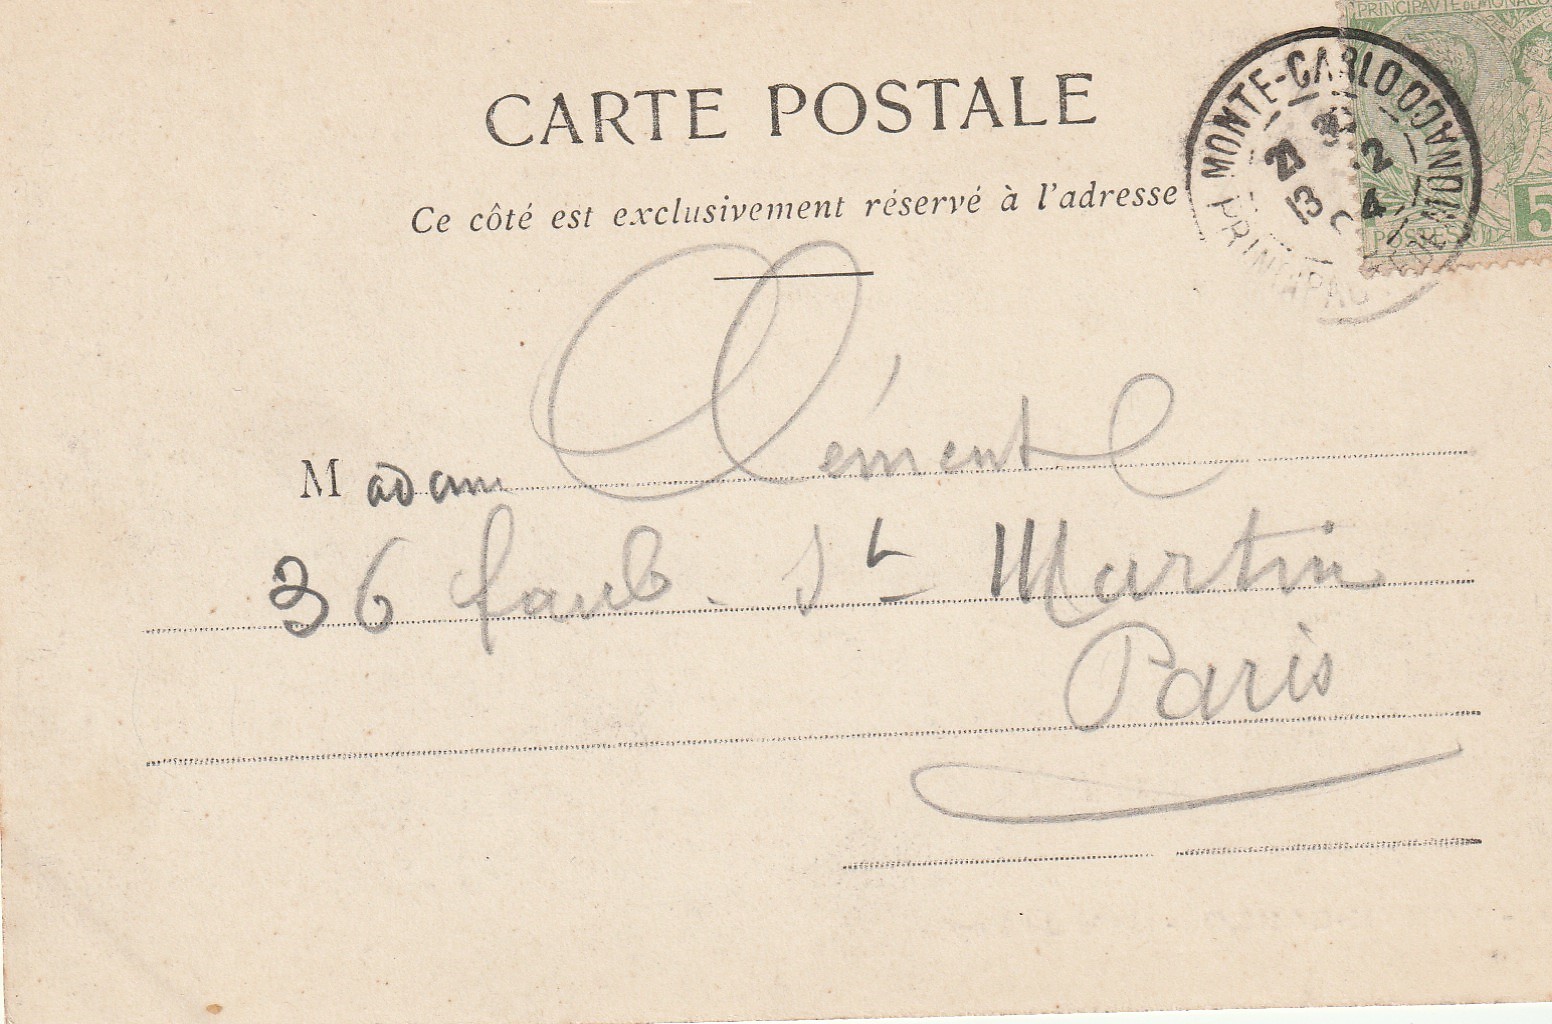 CARTE POSTALE
PRINCIPAUTÉ DE MONACO
MONTE-CARLO MONACO
Ce côté est exclusivement réservé à l'adresse
5
POSTES
Madam Clément
36 faub. St Martin
Paris